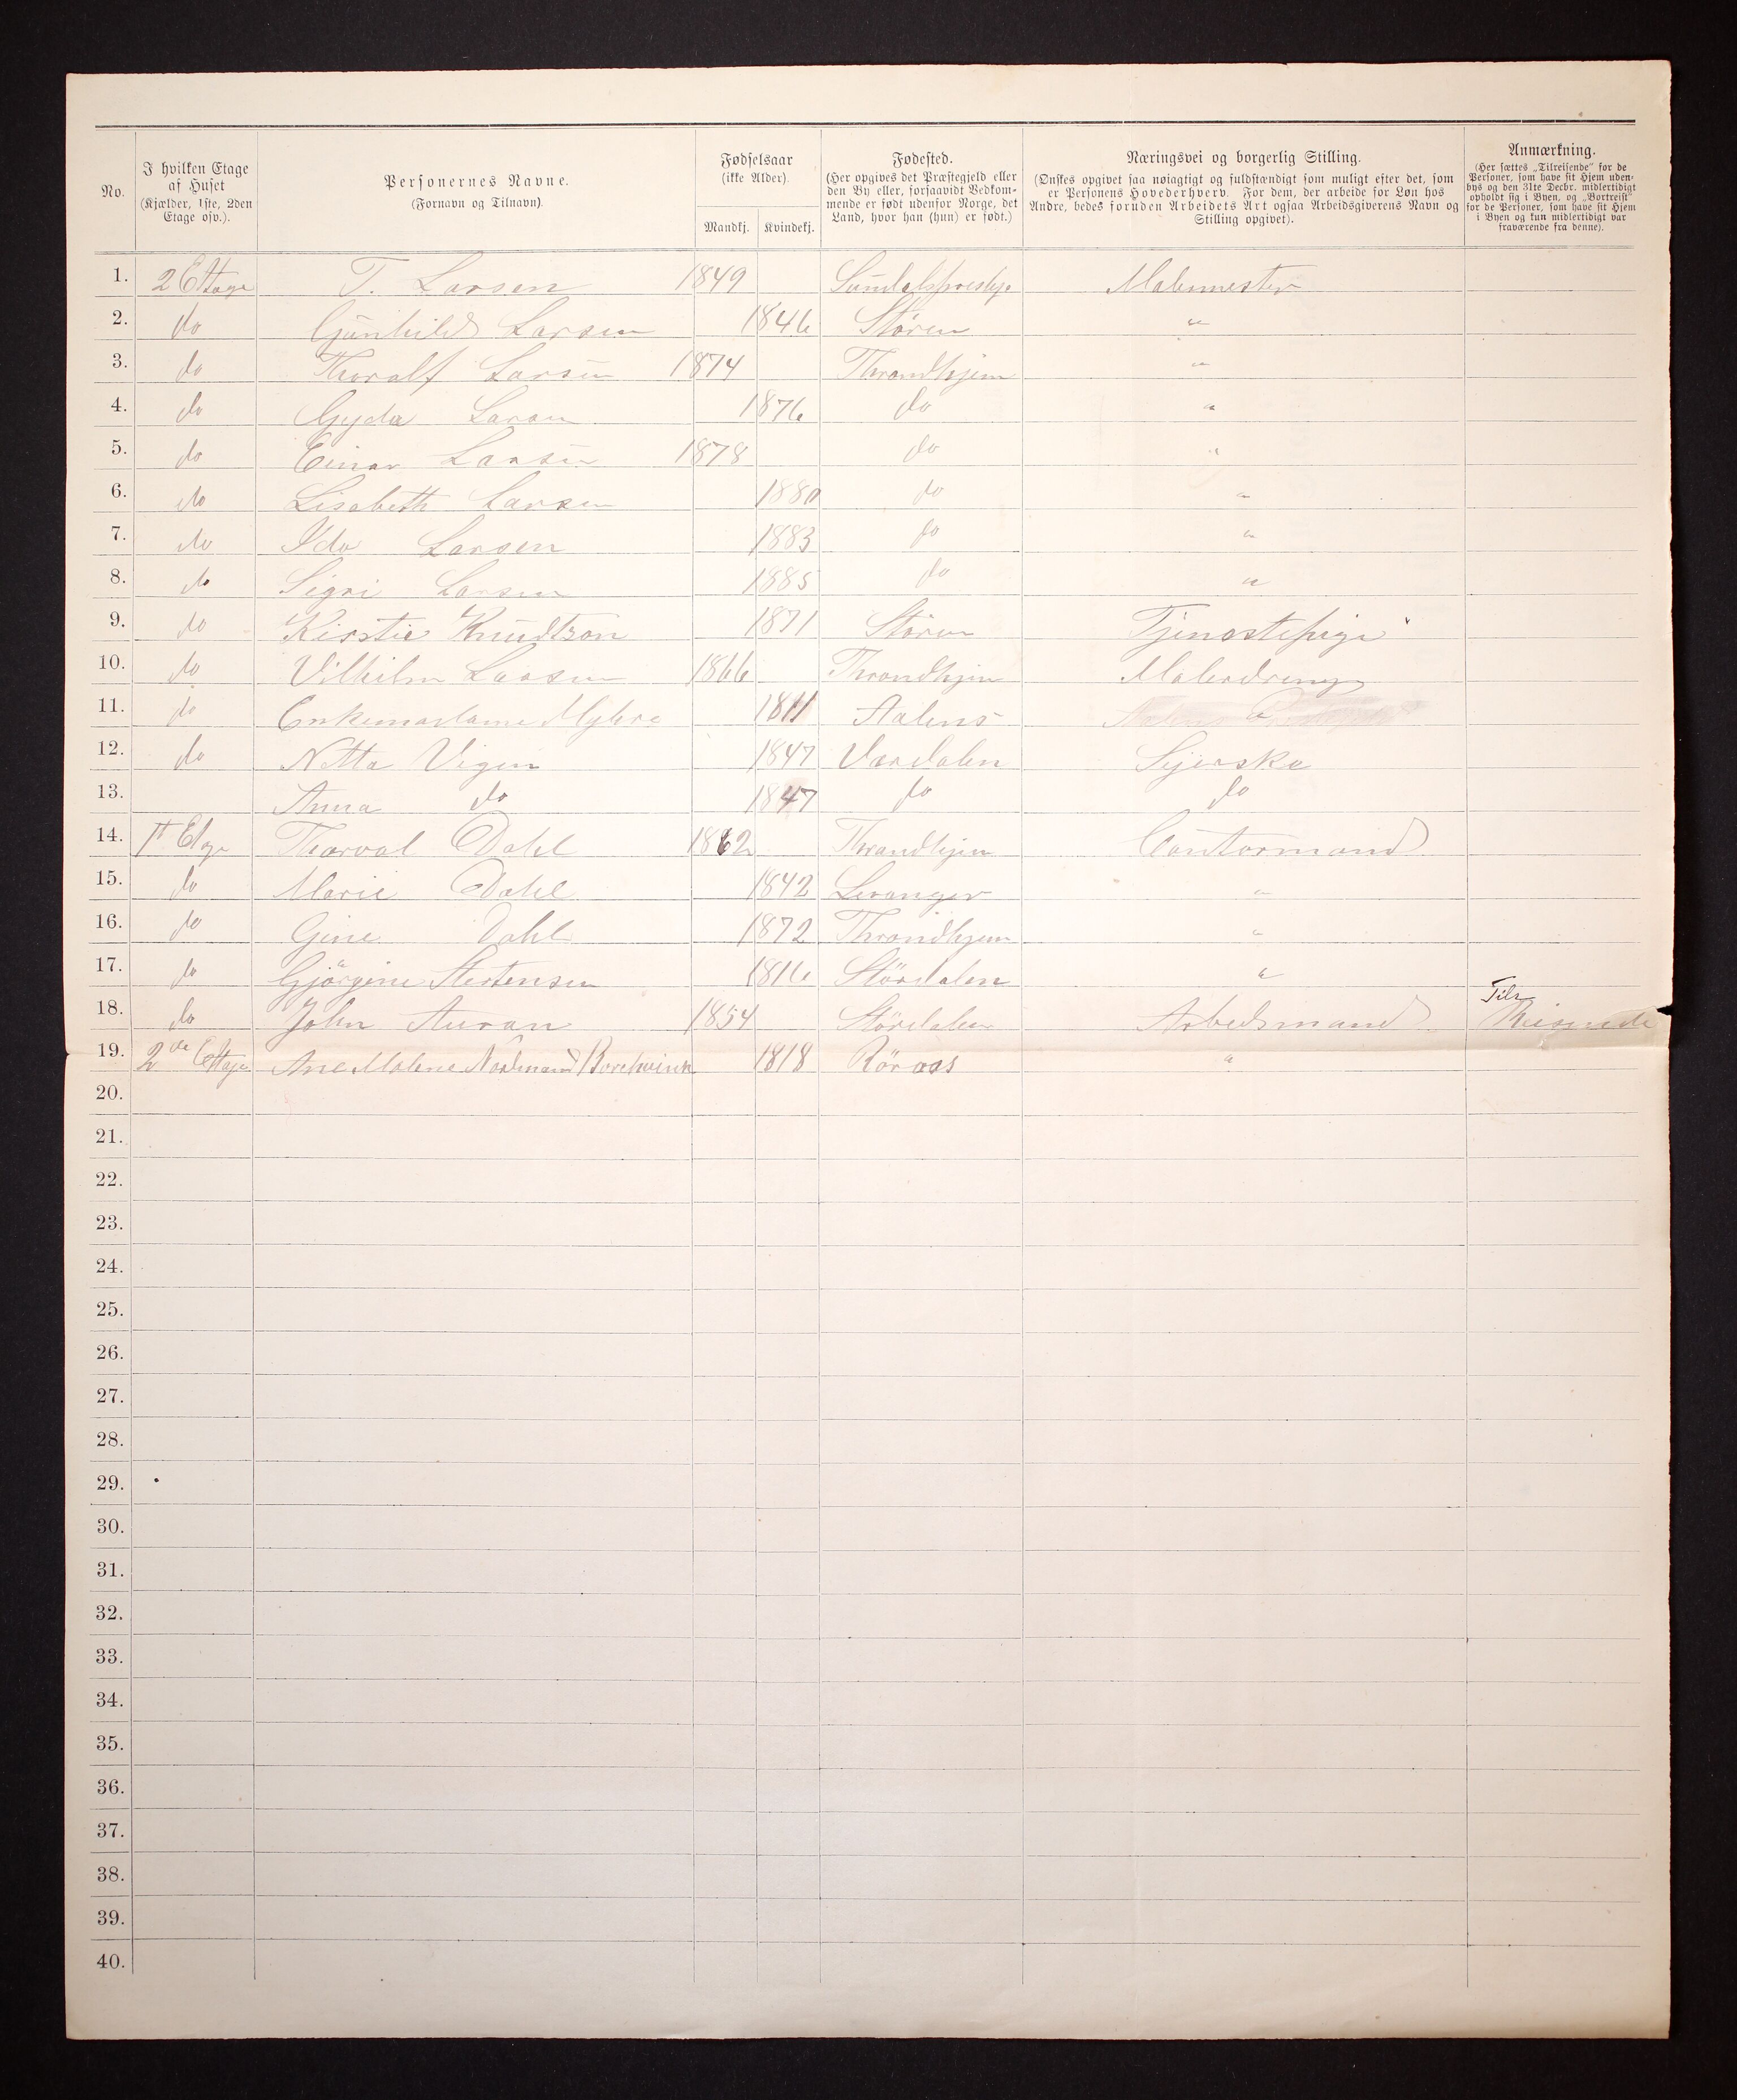 No.
I hvilken Etage af Huset (Kjælder, 1ste, 2den Etage osv.).
Personernes Navne. (Fornavn og Tilnavn).
Fødselsaar (ikke Alder).
Mandkj. Kvindekj.
Fødested. (Her opgives det Præstegjeld eller den By eller, forsaavidt Vedkommende er født udenfor Norge, det Land, hvor han (hun) er født.)
Næringsvei og borgerlig Stilling. (Ønskes opgivet saa nøiagtigt og fuldstændigt som muligt efter det, som er Personens Hovederhverv. For dem, der arbeide for Løn hos Andre, bedes foruden Arbeidets Art ogsaa Arbeidsgiverens Navn og Stilling opgivet).
Anmærkning. (Her sættes „Tilreisende“ for de Personer, som have sit Hjem udenbys og den 31te Decbr. midlertidigt opholdt sig i Byen, og „Bortreist“ for de Personer, som have sit Hjem i Byen og kun midlertidigt var fraværende fra denne).
1. 2 Ettage T. Larsen 1849 Malermester
2. do Gunhild Larsen 1846 Støren "
3. do Thoralf Larsen 1874 Throndhjem "
4. do Gyda Larsen 1876 do "
5. do Einar Larsen 1878 do "
6. do Lisabeth Larsen 1880 do "
7. do Ida Larsen 1883 do "
8. do Sigri Larsen 1885 do "
9. do Kirstie Knudtson 1871 Støren Tjenestepige
10. do Vilhilm Larsen 1866 Throndhjem Malerdreng
11. do Enkemadame Myhre 1811 Aalens "
12. do Netta Vigen 1847 Værdalen Sijerske
13. Anna do 1847 do do
14. 1t Etage Thorval Dahl 1862 Throndhjem Contormand
15. do Marie Dahl 1842 Levanger "
16. do Gine Dahl 1872 Throndhjem "
17. do Gjørgine Stertensen 1816 Størdalen "
18. do John Auran 1854 Størdalen Arbedsmand Tilr Reisende
19. 2de Ettage Ane Malene Nordmand Borchvinck 1818 Röraas "
20.
21.
22.
23.
24.
25.
26.
27.
28.
29.
30.
31.
32.
33.
34.
35.
36.
37.
38.
39.
40.